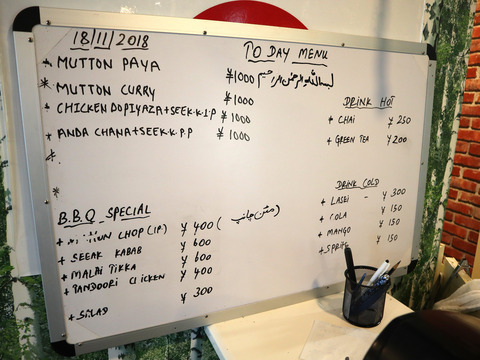 18/11/2018
TO DAY MENU
* MUTTON PAYA ¥1000
بسم الله الرحمن الرحیم
* MUTTON CURRY ¥1000
CHICKEN DOPIYAZA+SEEK.K.1.P ¥1000
ANDA CHANA+SEEK.K.P.P ¥1000
*
*
DRINK HOT
+ CHAI ¥250
+ GREEN TEA ¥200
B.B.Q SPECIAL
+ MUTTON CHOP (1P.) ¥400 (مٹن چانپ)
+ SEEAK KABAB ¥600
+ MALAI TIKKA ¥600
+ TANDOORI CHICKEN ¥400
+ SALAD ¥300
DRINK COLD
+ LASSI - ¥300
+ COLA ¥150
+ MANGO ¥150
+ SPRITE ¥150